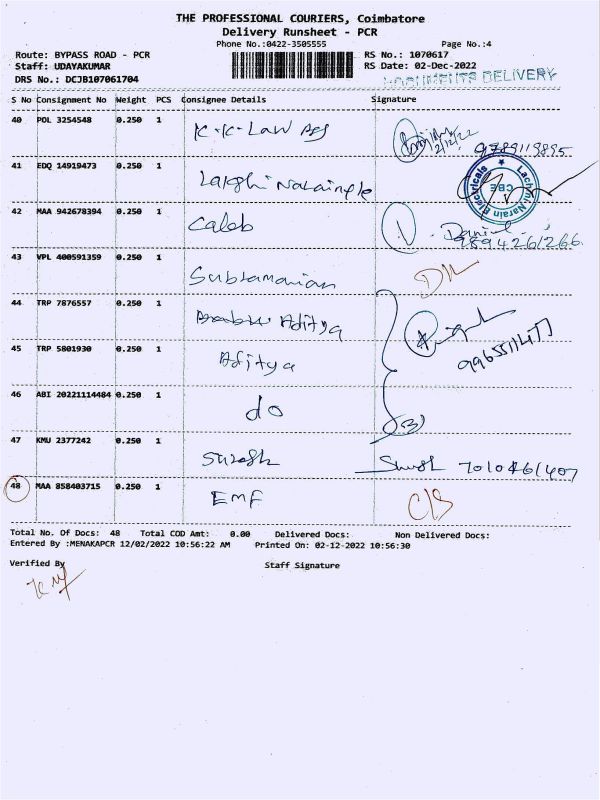 THE PROFESSIONAL COURIERS, Coimbatore
Delivery Runsheet - PCR
Phone No.:0422-3505555
Page No.:4
Route: BYPASS ROAD - PCR
RS No.: 1070617
Staff: UDAYAKUMAR
RS Date: 02-Dec-2022
DRS No.: DCJB107061704
DELIVERY
S No Consignment No Weight PCS Consignee Details Signature
40 POL 3254548 0.250 1 K-K-Law
2/12/22 9789119895
41 EDQ 14919473 0.250 1
Lachmi Narain Electricals CBE
42 MAA 942678394 0.250 1 Caleb Daniel
9894261266
43 VPL 400591359 0.250 1 Subramanian
44 TRP 7876557 0.250 1 Aditya
45 TRP 5801930 0.250 1 Aditya
46 ABI 20221114484 0.250 1 do (3)
47 KMU 2377242 0.250 1 Suresh
48 MAA 858403715 0.250 1 EMF
Total No. Of Docs: 48 Total COD Amt: 0.00 Delivered Docs: Non Delivered Docs:
Entered By :MENAKAPCR 12/02/2022 10:56:22 AM Printed On: 02-12-2022 10:56:30
Verified By Staff Signature